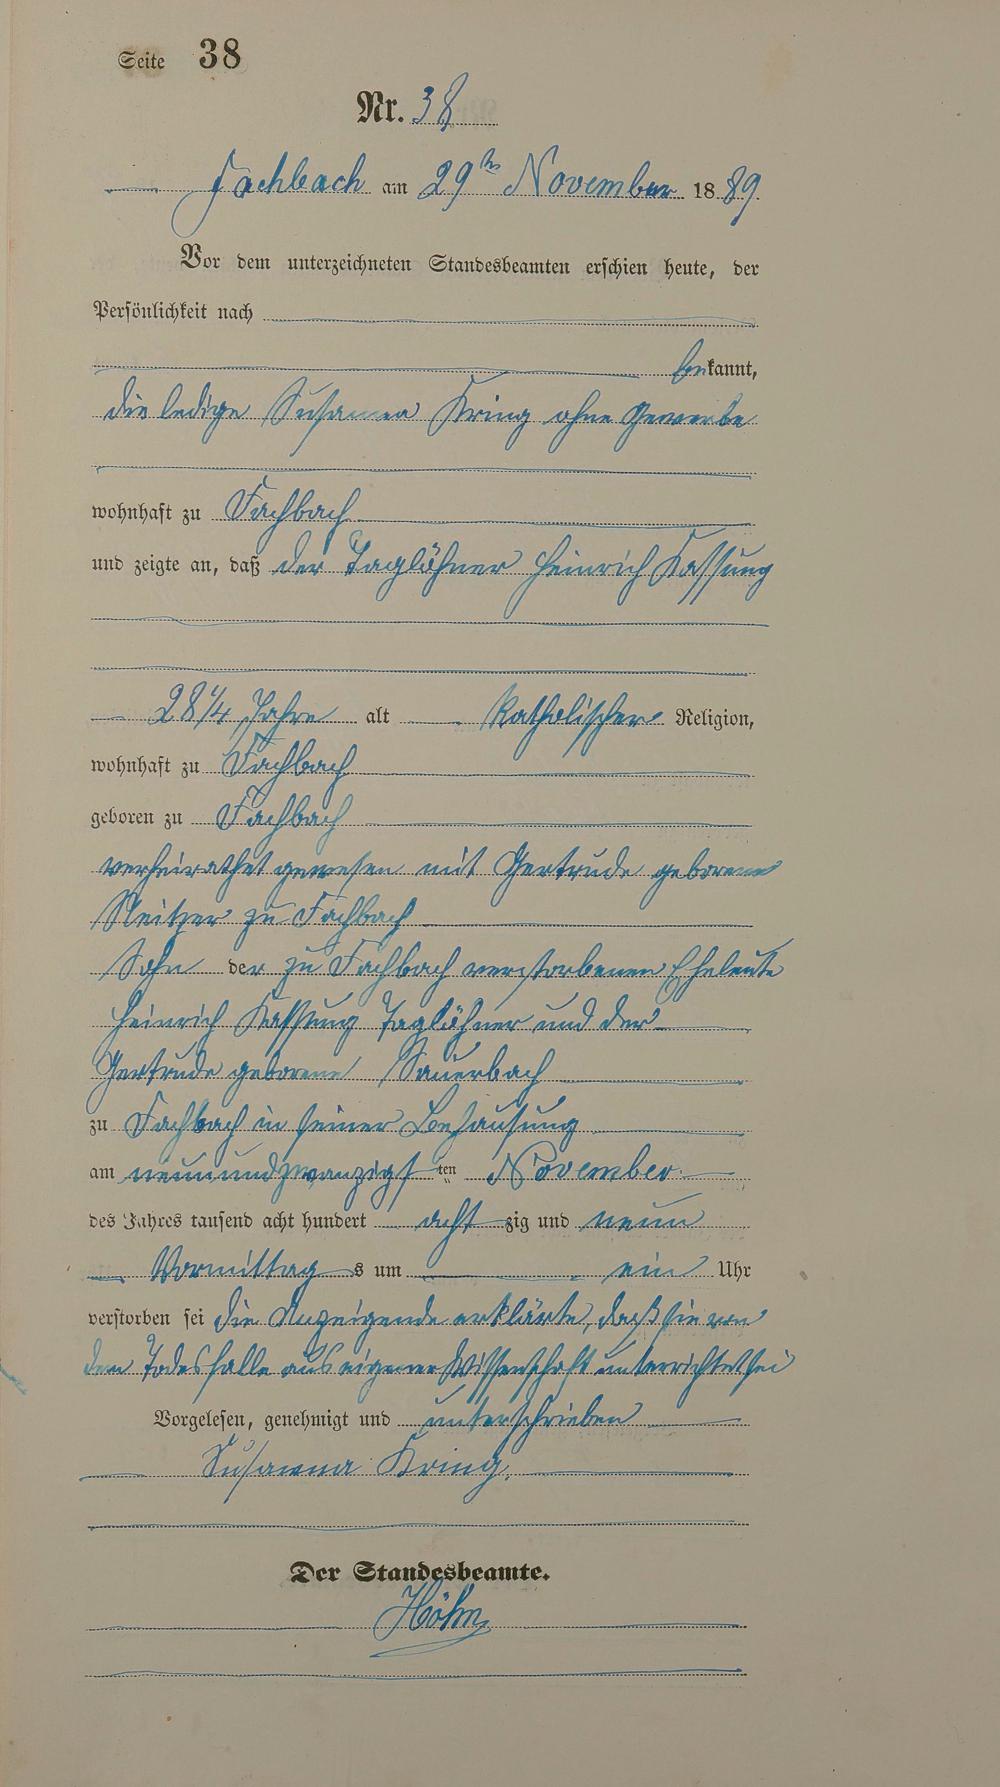 Seite 38
Nr. 38
Fachbach am 29ten November 1889.
Vor dem unterzeichneten Standesbeamten erschien heute, der
Persönlichkeit nach
bekannt,
die ledige Susanna Kring ohne Gewerbe
wohnhaft zu Fachbach
und zeigte an, daß der Taglöhner Heinrich Kassung
28 1/4 Jahre alt katholischer Religion,
wohnhaft zu Fachbach
geboren zu Fachbach
verheirathet gewesen mit Gertrude geborene
zu Fachbach
Sohn der zu Fachbach verstorbenen Eheleute
Heinrich Kassung Taglöhner und der
Gertrude geborene Sauerbach
zu Fachbach in seiner Behausung
am neunundzwanzigsten November
des Jahres tausend acht hundert achtzig und neun
Vormittags um ein Uhr
verstorben sei die Anzeigende erklärte, daß sie von
dem Todesfalle aus eigener Wissenschaft unterrichtet sei
Vorgelesen, genehmigt und unterschrieben
Susanna Kring.
Der Standesbeamte.
Höhn